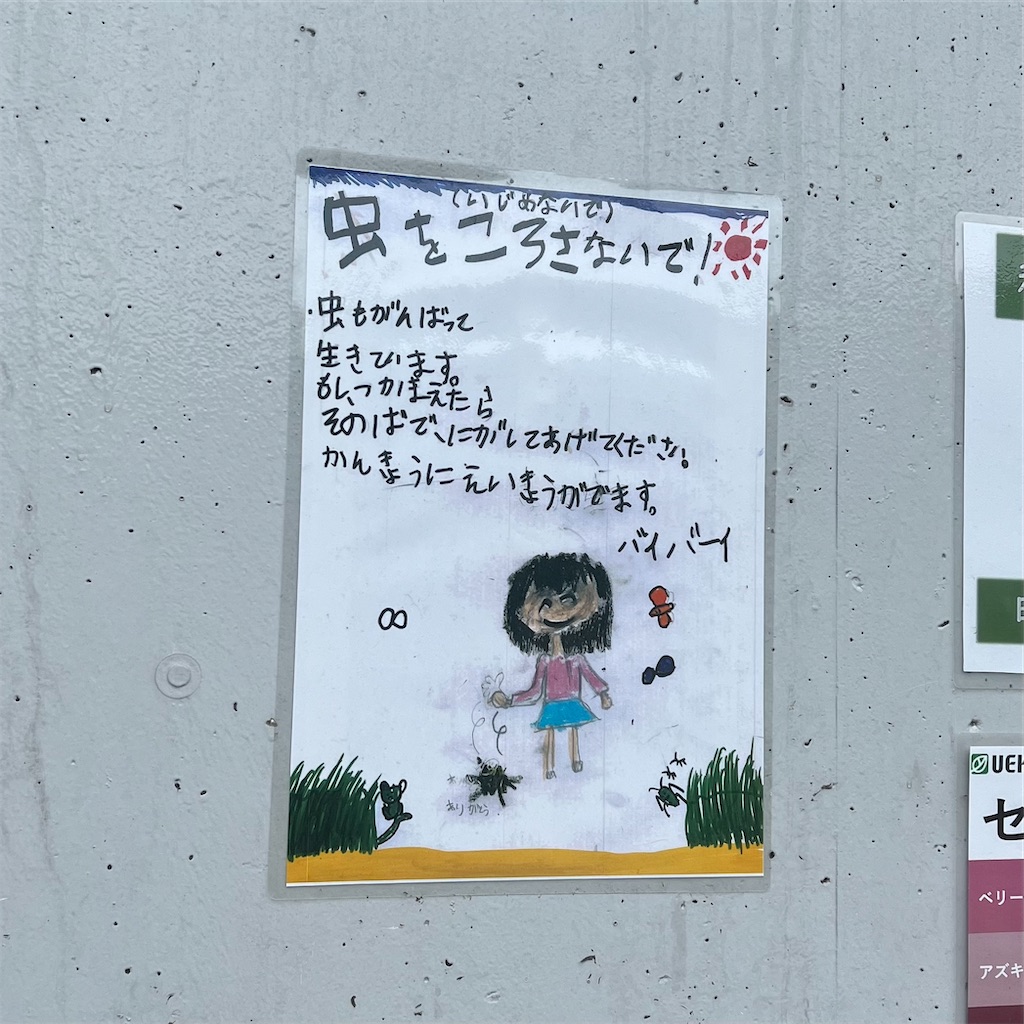 (いじめないで)
虫をころさないで!
虫もがんばって
生きています。
もし、つかまえたら
そのばで、にがしてあげてください。
かんきょうにえいきょうがでます。
バイバーイ
ありがとう
UEK
セ
ベリー
アズキ